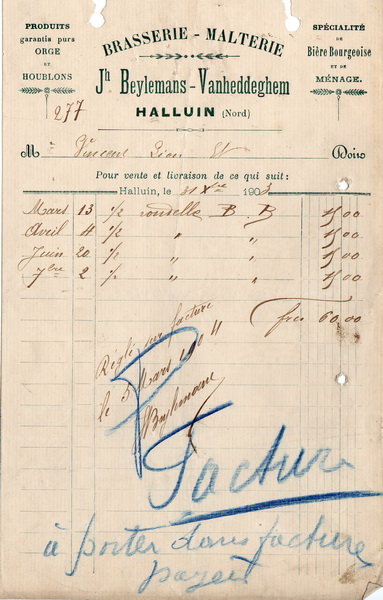 PRODUITS
garantis purs
ORGE
ET
HOUBLONS
BRASSERIE - MALTERIE
Jh Beylemans-Vanheddeghem
HALLUIN (Nord)
SPÉCIALITÉ
DE
Bière Bourgeoise
ET DE
MÉNAGE.
277
M Vincent Doit
Pour vente et livraison de ce qui suit:
Halluin, le 31 Xbre 1903
Mars 13 1/2 rondelle B. B 15,00
Avril 4 1/2 " " 15,00
Juin 20 1/2 " " 15,00
7bre 2 1/2 " " 15,00
frcs 60,00
Réglé sur facture
le 5 Mars 1904
Beylemans
Facture
à porter dans facture
payeé